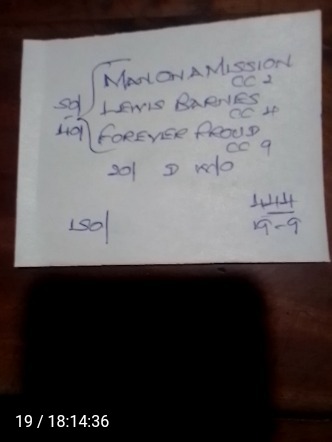 MAN ON A MISSION
CC 2
50/ LEWIS BARNES
CC 4
40/ FOREVER PROUD
CC 9
20/ D W/O
150/
144
19-9
19 / 18:14:36